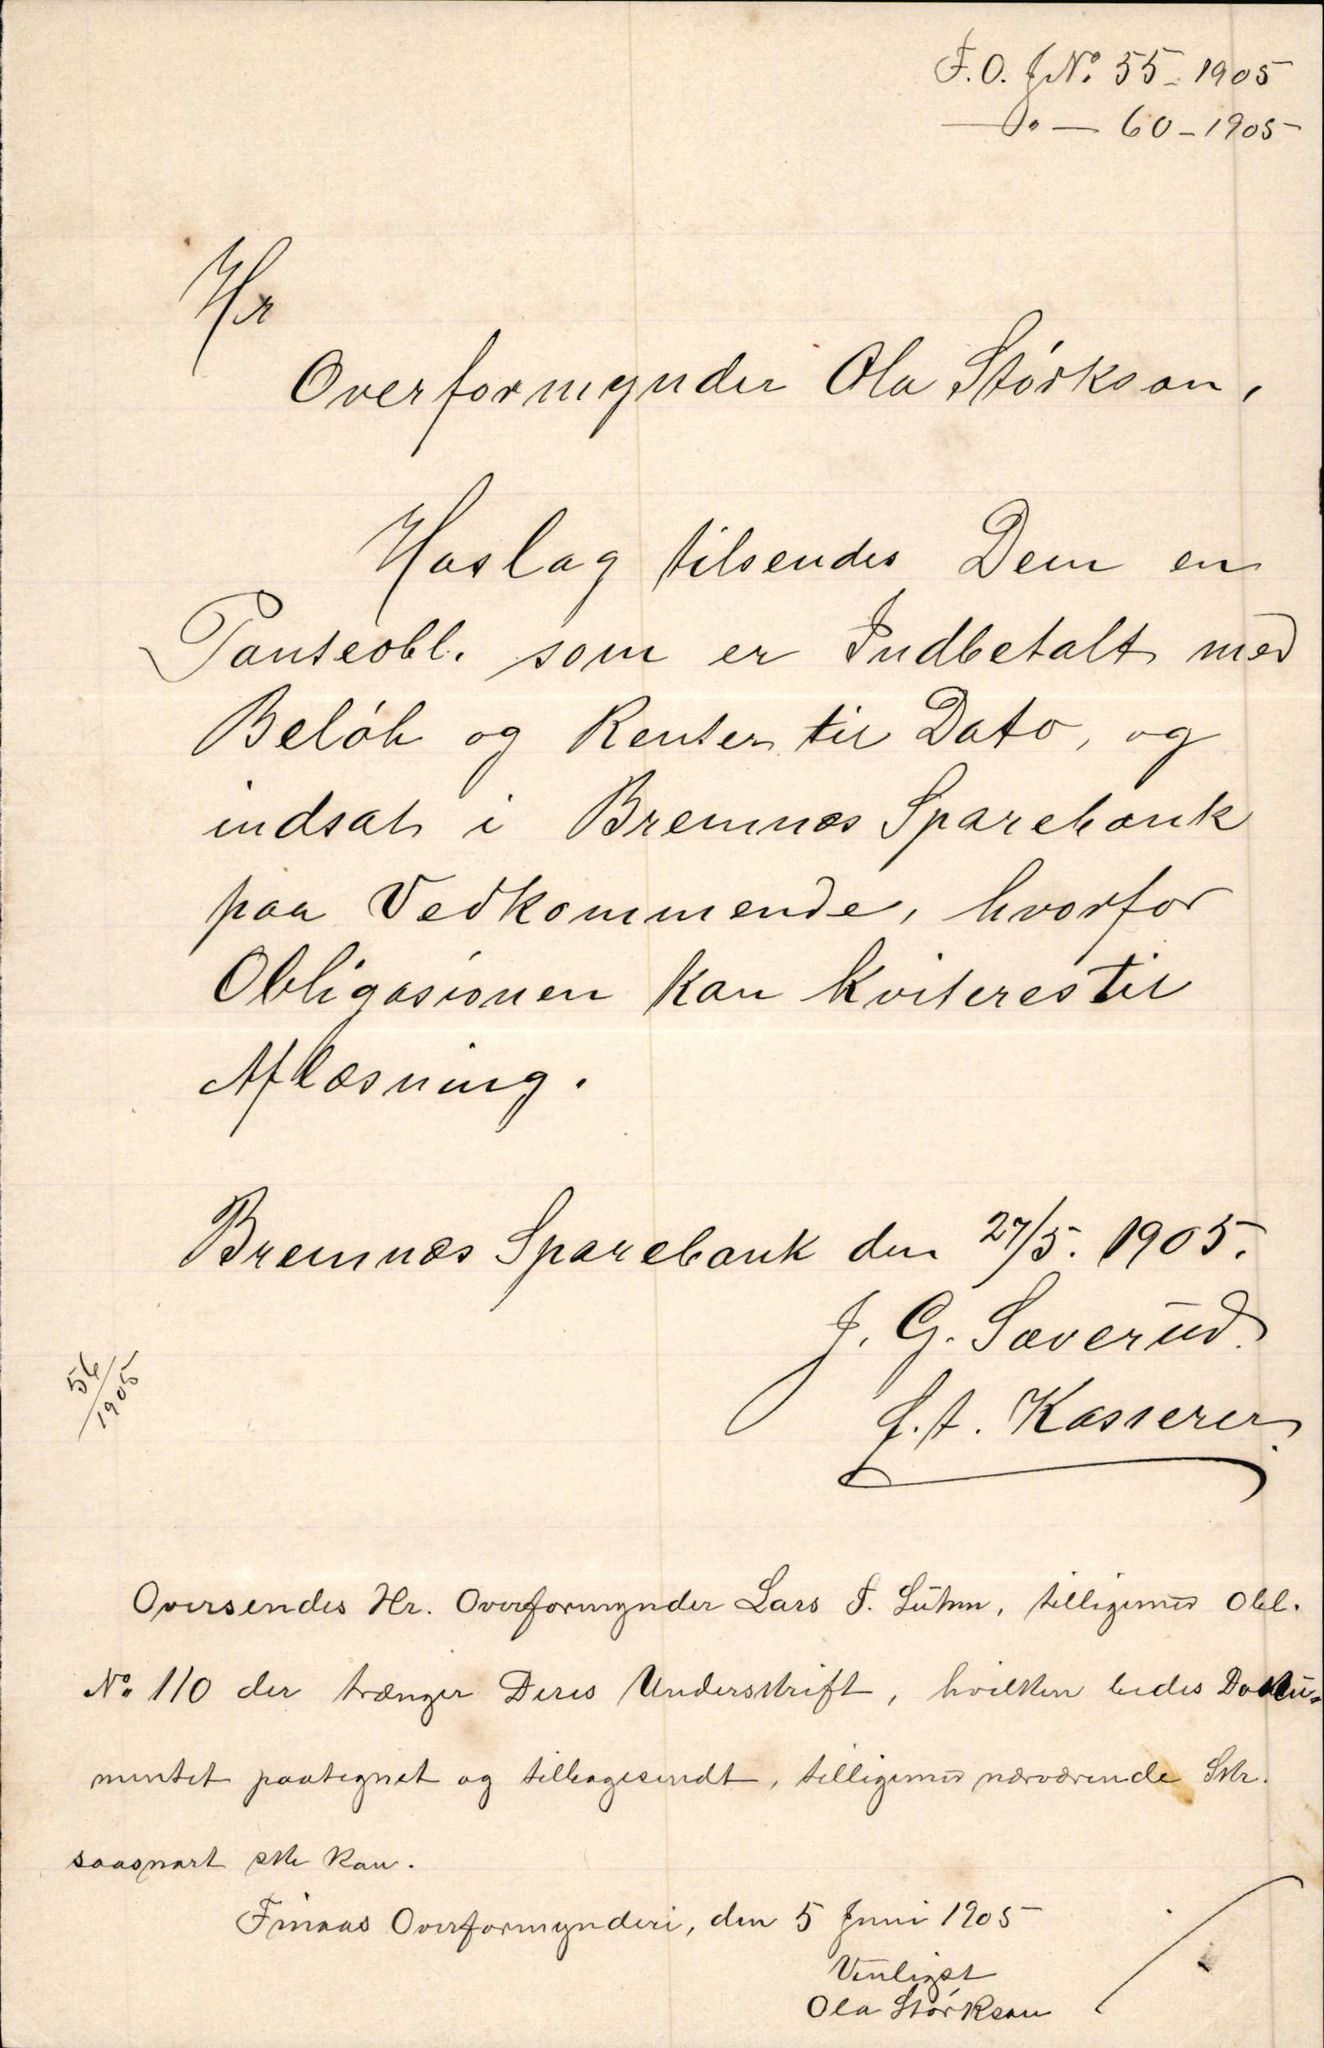 F.O. J№ 55-1905
—"— 60-1905
Hr
Overformynder Ola Störkson,
Hoslag tilsendes Dem en
Panteobl. som er Indbetalt med
Belöb og Renter til Dato, og
indsat i Bremnæs Sparebank
paa Vedkommende, hvorfor
Obligasionen kan kviteres til
Aflæsning.
Bremnæs Sparebank den 27/5. 1905.
J. G. Sæverud.
f.t. Kasserer.
56/1905
Oversendes Hr. Overformynder Lars F. tilligemed Obl.
№ 110 der trænger Deres Underskrift, hvilken bedes Doku-
mentet paategnet og tilbagesendt, tilligemed nærværende Skr.
saasnart ske kan.
Finaas Overformynderi, den 5 Juni 1905
Venligst
Ola Störkson